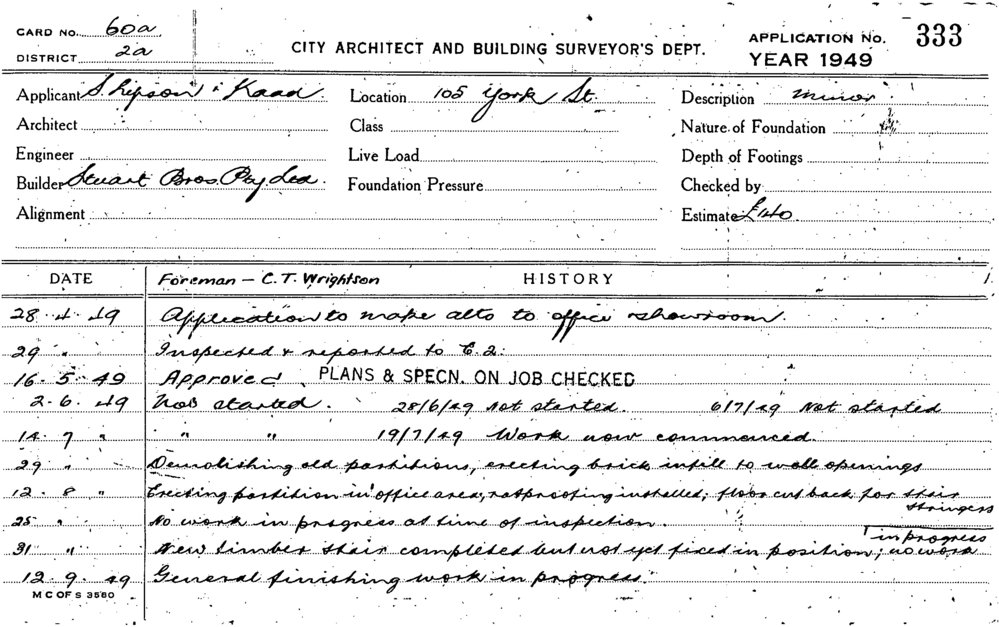 CARD NO. 60a
DISTRICT 2a
CITY ARCHITECT AND BUILDING SURVEYOR'S DEPT.
APPLICATION NO. 333
YEAR 1949
Applicant S. Lipson & Kaad. Location 105 York St. Description minor
Architect Class Nature of Foundation
Engineer Live Load Depth of Footings
Builder Stuart Bros. Pty Ltd. Foundation Pressure Checked by
Alignment Estimate £140
DATE Foreman - C.T. Wrightson HISTORY
28. 4. 49 Application to make alts to office & showroom.
29 " Inspected & reported to E.2.
16. 5. 49 Approved PLANS & SPECN. ON JOB CHECKED
2. 6. 49 Not started. 28/6/49 Not started. 6/7/49 Not started
14. 7 " " " 19/7/49 Work now commenced.
29 " Demolishing old partitions, erecting brick infill to wall openings
12. 8 " Erecting partition in office area, ratproofing installed; floor cut back for stair
stringers
25 " No work in progress at time of inspection.
31 " New timber stair completed but not yet fixed in position; no work
in progress
12. 9. 49 General finishing work in progress.
M C OF S 3580